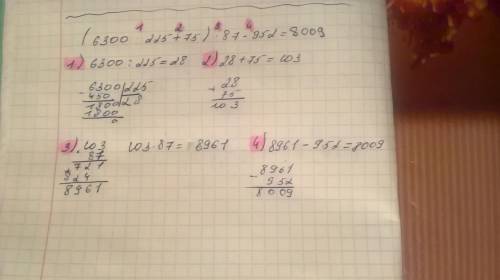 1 2 3 4
(6300 : 225 + 75) · 87 - 952 = 8009
1) 6300 : 225 = 28 2) 28 + 75 = 103
- 6300 | 225
450 | 28
1800
1800
0
+ 28
75
103
3) · 103
87
721
+ 824
8961
103 · 87 = 8961
4) 8961 - 952 = 8009
- 8961
952
8009